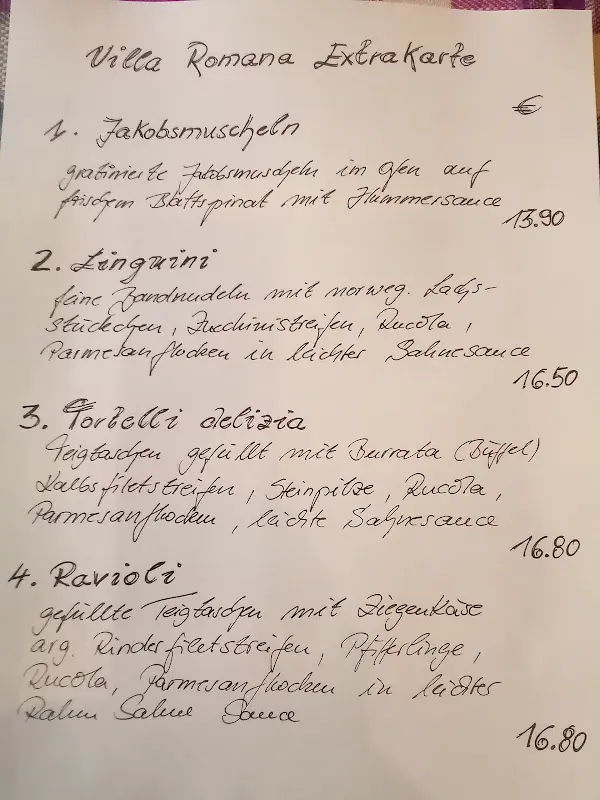 Villa Romana Extrakarte
€
1. Jakobsmuscheln
gratinierte Jakobsmuscheln im Ofen auf
frischem Blattspinat mit Hummersauce
13.90
2. Linguini
feine Bandnudeln mit norweg. Lachs-
stückchen, Zucchinistreifen, Rucola,
Parmesanflocken in leichter Sahnesauce
16.50
3. Tortelli delizia
Teigtaschen gefüllt mit Burrata (Büffel)
Kalbsfiletstreifen, Steinpilze, Rucola,
Parmesanflocken, leichte Sahnesauce
16.80
4. Ravioli
gefüllte Teigtaschen mit Ziegenkäse
arg. Rinderfiletstreifen, Pfifferlinge,
Rucola, Parmesanflocken in leichter
Rahm Sahne Sauce
16.80